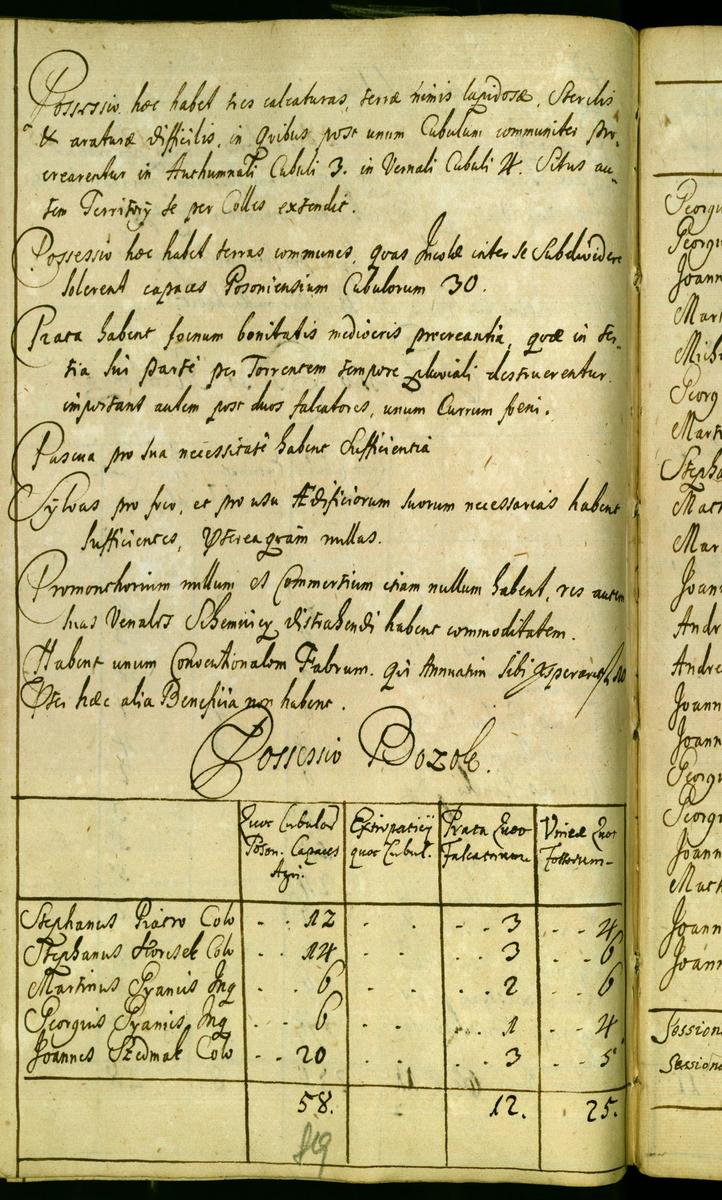 Possessio hæc habet tres calcaturas, terræ nimis lapidosæ, Sterilis
& araturæ difficilis, in quibus post unum Cubulum communiter pro-
crearentur in Authumnali Cubuli 3. in Vernali Cubuli 4. Situs au-
tem Territorÿ se per Colles extendit.
Possessio hæc habet terras communes, quas Incolæ inter se Subdividere
solerent capaces Posoniensium Cubulorum 30.
Prata habent fœnum bonitatis mediocris procreantia, quæ in ter-
tia sui parte per Torrentem tempore pluviali destruerentur.
important autem post duos falcatores, unum Currum fœni.
Pascua pro sua necessitate habent Sufficientia
Sylvas pro foco, et pro usu Ædificiorum suorum necessarias habent
sufficientes, Pterea quam nullas.
Promonthorium nullum et Commertium etiam nullum habent, res autem
suas Venales Schemnicÿ distrahendi habent commoditatem.
Habent unum Conventionalem Fabrum. qui Annuatim sibi
Pter hæc alia Beneficia non habent.
Possessio Bozok.
Quot Cubulor Poson. Capaces Agri.
Extirpaticÿ quot Cubul.
Prata Quot Falcatorum
Vineæ Quot Fossorum-
Stephanus Colo . . 12 . . . . 3 . . 4
Stephanus Colo . . 14 . . . . 3 . . 6
Martinus Gyanics Inq . . 6 . . . . 2 . . 6
Georgius Gyanics Inq . . 6 . . . . 1 . . 4
Joannes Szedmak Colo . . 20 . . . . 3 . . 5
58. 12. 25.
Georgi
Georgi
Joann
Mart
Micha
Georg
Marti
Stepha
Mart
Mar
Joann
Andr
Andre
Joann
Joann
Georgi
Georgi
Joann
Mart
Joann
Joann
Session
Session